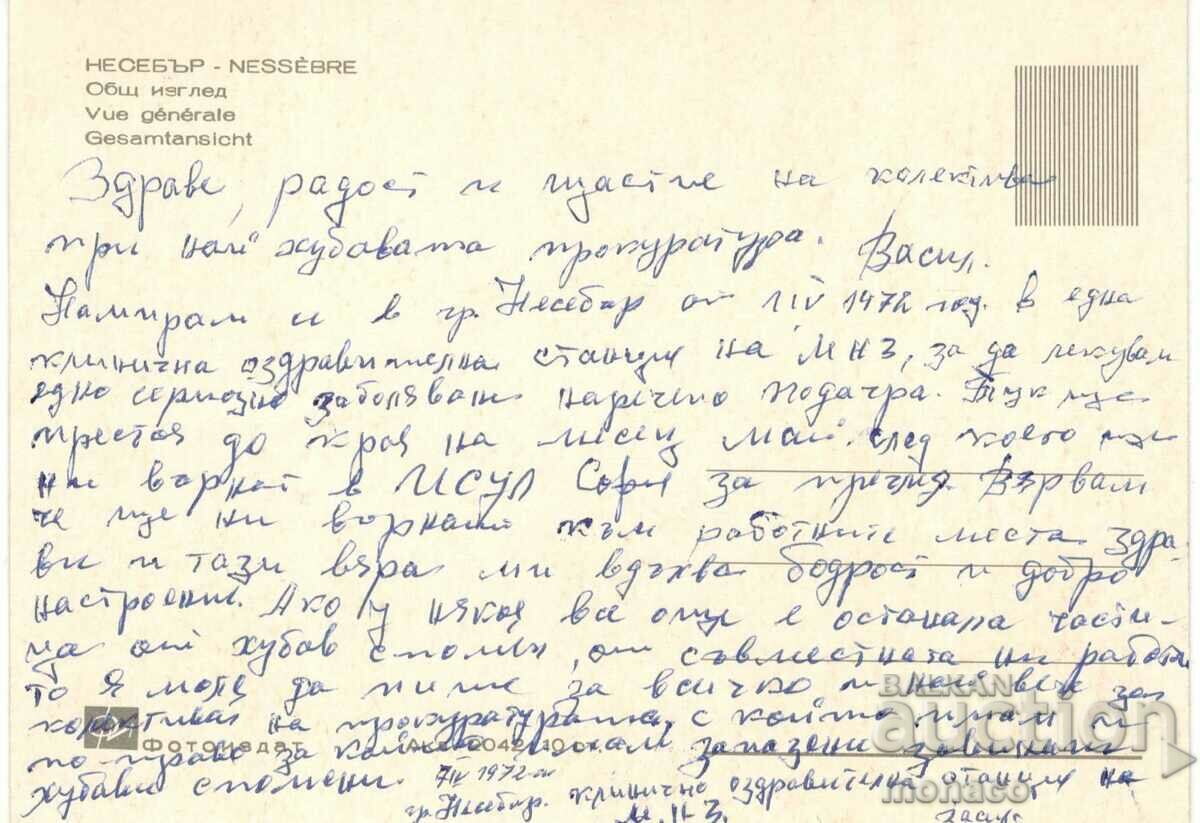 НЕСЕБЪР - NESSÈBRE
Общ изглед
Vue générale
Gesamtansicht
Здраве, радост и щастие на колектива
при най хубавата прокуратура. Васил.
Намирам се в гр. Несебър от 1 IV 1972 год. в една
клинична оздравителна станция на МНЗ, за да лекувам
едно сериозно заболяване наречено подагра. Тук ще
престоя до края на месец май. след което ще
ни върнат в ИСУЛ София за преглед. Вярвам
че ще ни върнат към работните места здра-
ви и тази вяра ми вдъхва бодрост и добро
настроение. Ако у някоя все още е останала части-
ца от хубав спомен, от съвместната ни работа
то я моля да пише за всичко и най вече за
колектива на прокуратурата, с който имам
по право за който запазени завинаги
хубави спомени. 7 IV 1972
Фотоиздат
гр. Несебър. клинично оздравителна станция на
М.Н.З.
BALKAN
auction
monaco